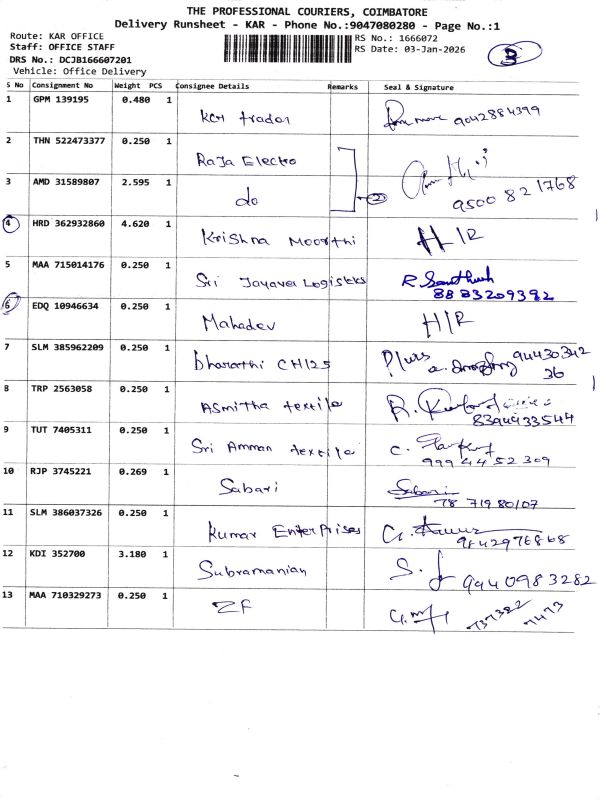 THE PROFESSIONAL COURIERS, COIMBATORE
Delivery Runsheet - KAR - Phone No.:9047080280 - Page No.:1
Route: KAR OFFICE
RS No.: 1666072
Staff: OFFICE STAFF
RS Date: 03-Jan-2026
3
DRS No.: DCJB166607201
Vehicle: Office Delivery
S No Consignment No Weight PCS Consignee Details Remarks Seal & Signature
1 GPM 139195 0.480 1 kcm trader 9042884399
2 THN 522473377 0.250 1 Raja Electro
3 AMD 31589807 2.595 1 do 2 9500821768
4 HRD 362932860 4.620 1 Krishna Moorthi H/R
5 MAA 715014176 0.250 1 Sri Jayavel Logistics R Santhosh
8883209392
6 EDQ 10946634 0.250 1 Mahadev H/R
7 SLM 385962209 0.250 1 bharathi CH125 94430342
36
8 TRP 2563058 0.250 1 Asmitha textile R.
8394433544
9 TUT 7405311 0.250 1 Sri Amman textile C.
9994452309
10 RJP 3745221 0.269 1 Sabari Sabari
78 71980107
11 SLM 386037326 0.250 1 Kumar Enterprises G. Kumar
9842976868
12 KDI 352700 3.180 1 Subramanian S. 9440983282
13 MAA 710329273 0.250 1 ZF 737382
7473